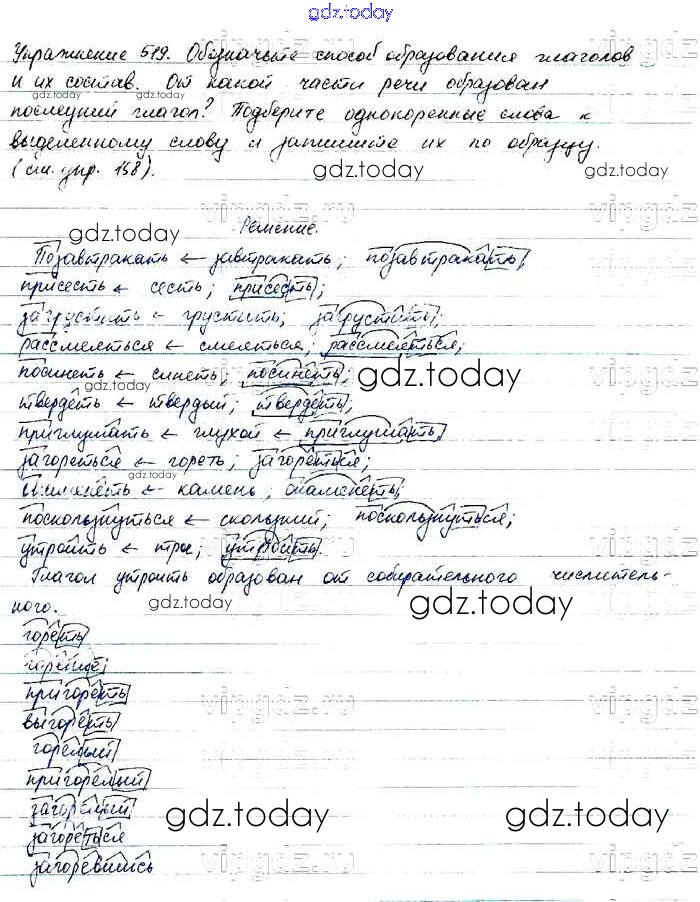 gdz.today
Упражнение 519. Обозначьте способ образования глаголов
и их состав. От какой части речи образован
gdz.today gdz.today
последний глагол? Подберите однокоренные слова к
выделенному слову и запишите их по образцу.
(см. упр. 158). gdz.today gdz.today
vipgdz.ru vipgdz
Решение.
gdz.today
Позавтракать ← завтракать; позавтракать;
присесть ← сесть; присесть;
загрустить ← грустить; загрустить;
рассмеяться ← смеяться; рассмеяться;
посинеть ← синеть; посинеть; gdz.today
gdz.today
твердеть ← твердый; твердеть;
приглушать ← глухой ← приглушать;
загореться ← гореть; загореться;
gdz.today
окаменеть ← камень; окаменеть;
поскользнуться ← скользкий; поскользнуться;
утроить ← трое; утроить.
Глагол утроить образован от собирательного числитель-
ного. gdz.today gdz.today
гореть
горение;
пригореть
vipgdz.ru vipgdz
выгореть
горелый
пригорелый
загорелый
gdz.today gdz.today
загореться
загоревшись
vipgdz.ru vipgdz